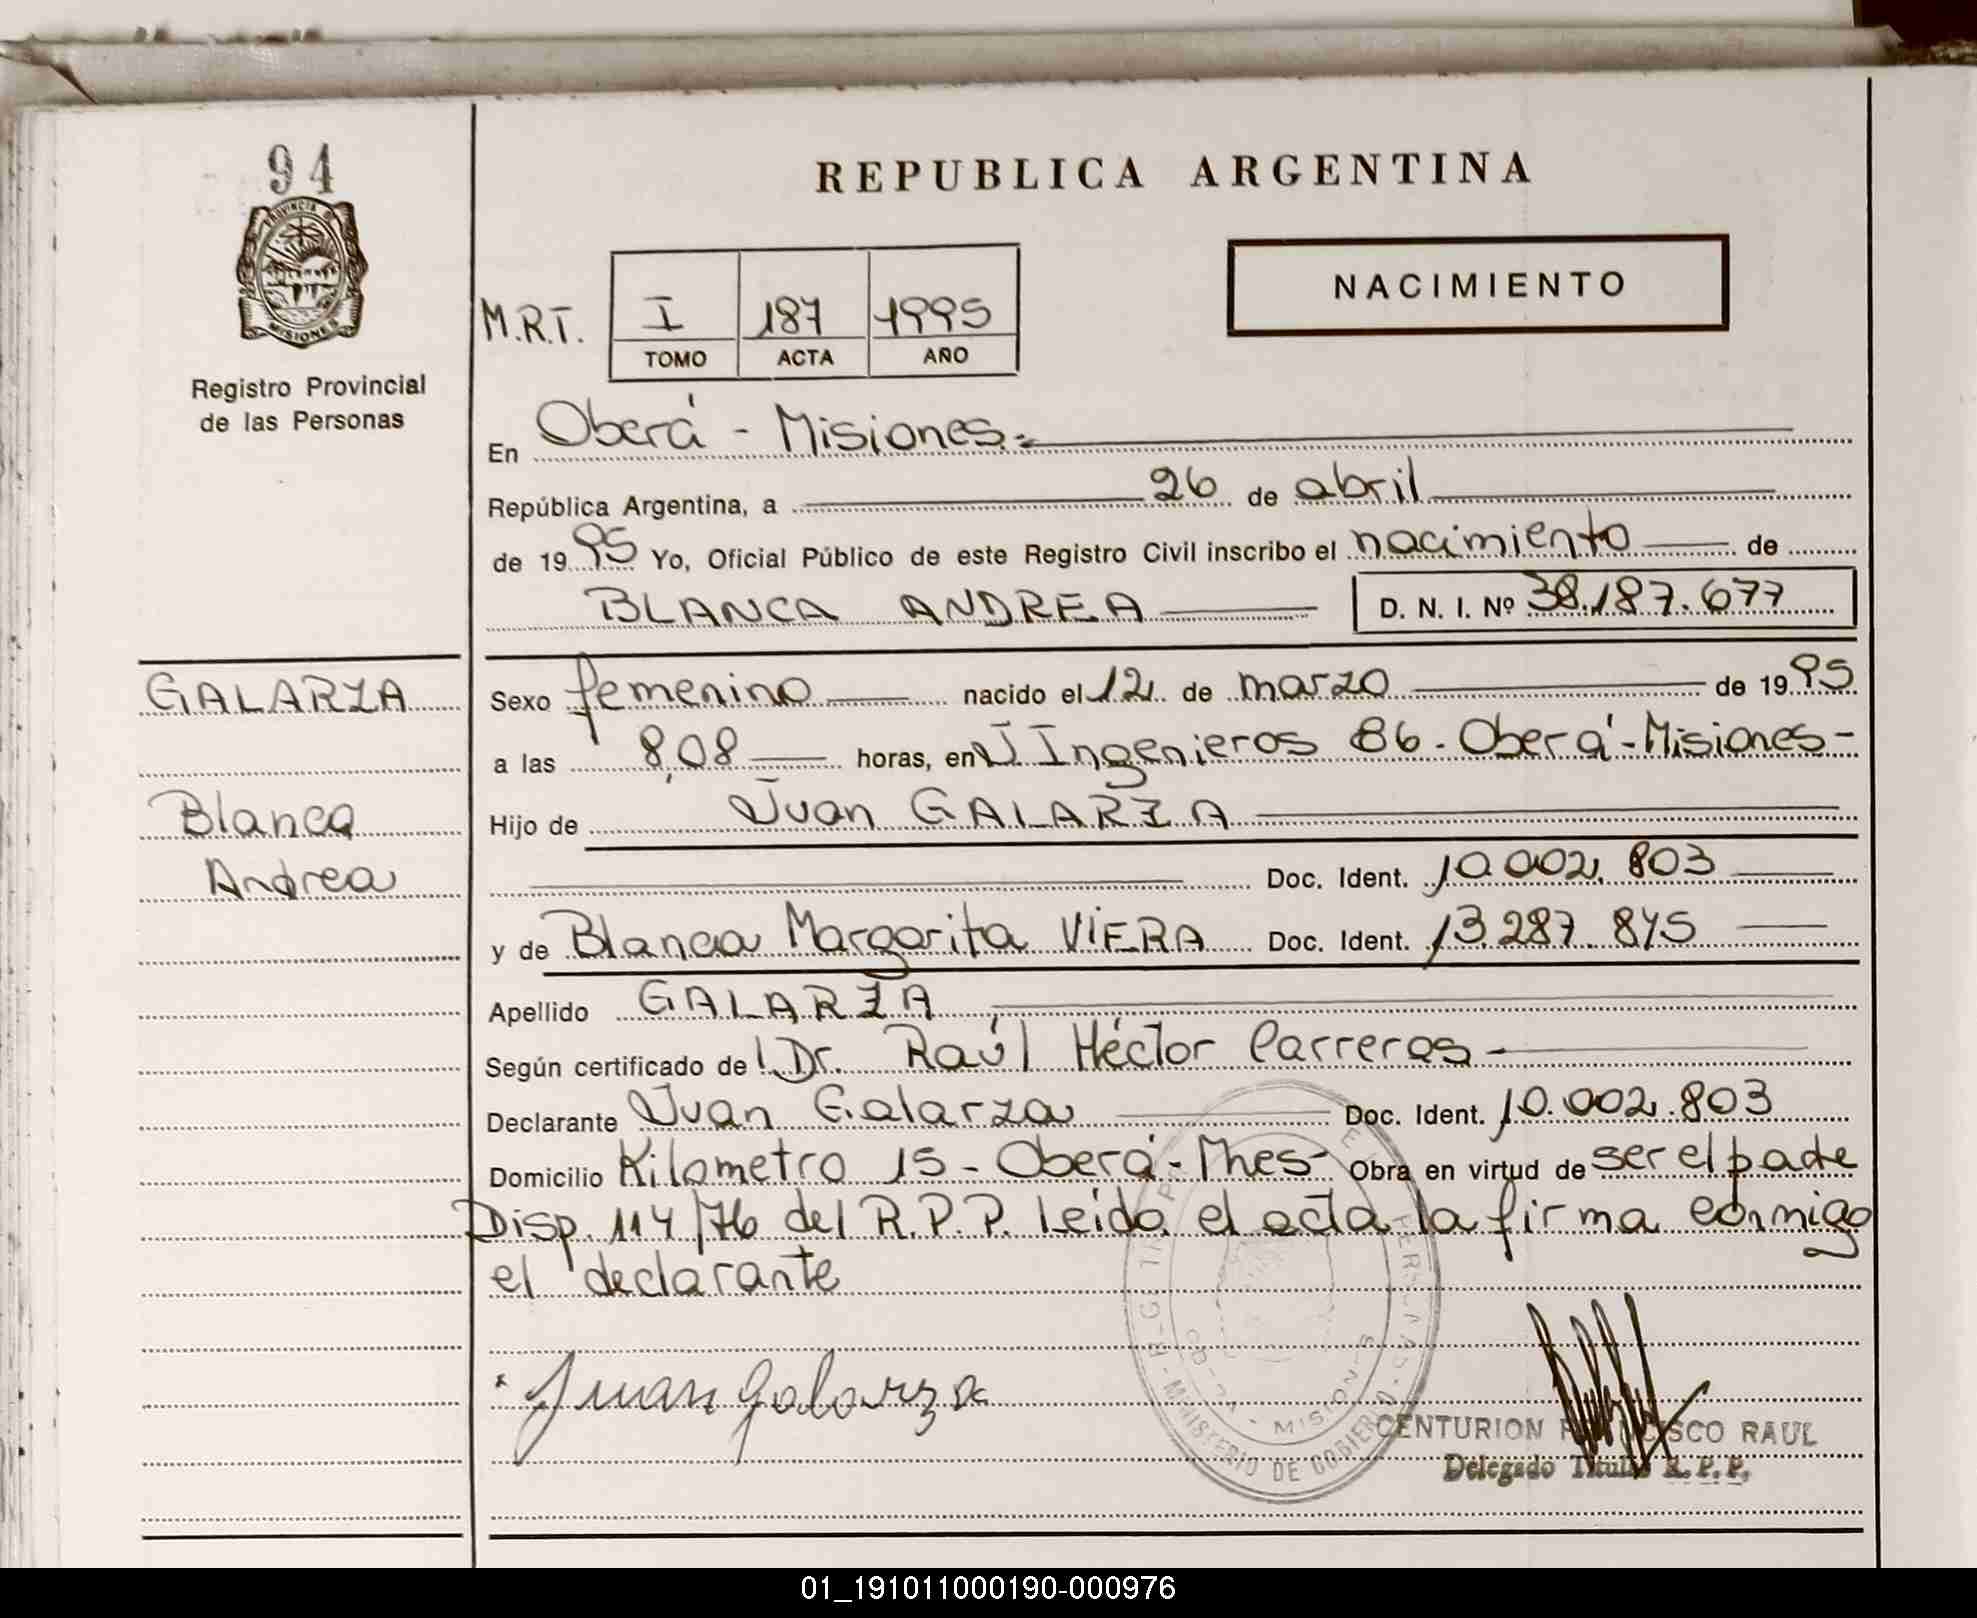 94
REPUBLICA ARGENTINA
PROVINCIA DE
MISIONES
Registro Provincial
de las Personas
M.R.T. I 187 1995
TOMO ACTA AÑO
NACIMIENTO
En Oberá - Misiones.-
República Argentina, a 26 de abril
de 1995 Yo, Oficial Público de este Registro Civil inscribo el nacimiento de
BLANCA ANDREA D. N. I. Nº 38.187.677
GALARZA
Blanca
Andrea
Sexo femenino nacido el 12 de marzo de 1995
a las 8,08 horas, en J Ingenieros 86 - Oberá - Misiones -
Hijo de Juan GALARZA
Doc. Ident. 10.002.803
y de Blanca Margarita VIERA Doc. Ident. 13.287.845
Apellido GALARZA
Según certificado de l Dr. Raúl Héctor Carreras -
Declarante Juan Galarza Doc. Ident. 10.002.803
Domicilio Kilometro 15 - Oberá - Mnes - Obra en virtud de ser el padre
Disp. 114/76 del R.P.P. Leída el acta la firma conmigo
el declarante
Juan Galarza
MINISTERIO DE GOBIERNO
MISIONES
CENTURION FRANCISCO RAUL
Delegado Titular R.P.P.
01_191011000190-000976